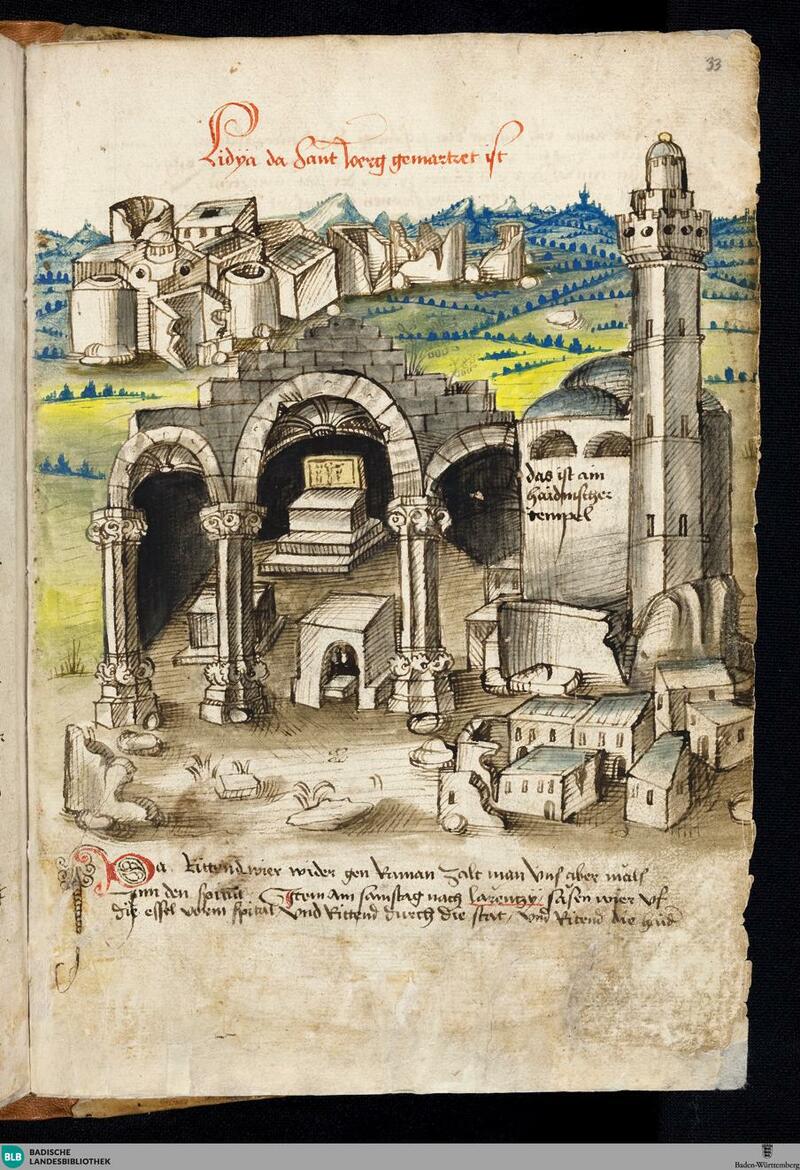 33
Lidya da Sant Joerg gemartret ist
das ist ain
haidnischer
tempel
Da Rittend wier wider gen Raman zalt man vns aber mals
inn den spittal Item Am samstag nach larentzy sasen wier vf
die essel vorem spital vnd Rittend durch die stat / vnd Ritend die haid
BLB BADISCHE
LANDESBIBLIOTHEK
Baden-Württemberg